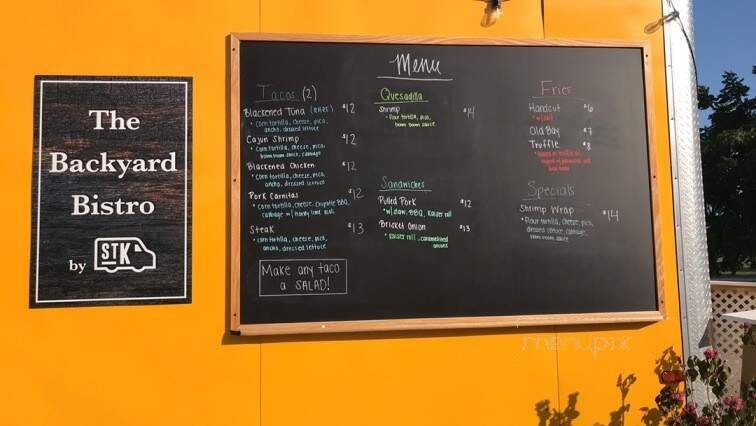 The
Backyard
Bistro
by STK
Menu
Tacos (2)
Blackened Tuna (RARE) $12
• corn tortilla, cheese, pico,
ancho, dressed lettuce
Cajun Shrimp $12
• corn tortilla, cheese, pico,
boom boom sauce, cabbage
Blackened Chicken $12
• corn tortilla, cheese, pico,
ancho, dressed lettuce
Pork Carnitas $12
• corn tortilla, cheese, Chipotle BBQ,
cabbage w/ honey lime
Steak $13
• corn tortilla, cheese, pico,
ancho, dressed lettuce
Make any taco
a SALAD!
Quesadilla
Shrimp $14
• flour tortilla, pico,
boom boom sauce
Sandwiches
Pulled Pork $12
• w/ slaw, BBQ, Kaiser roll
Brisket Onion $13
• Kaiser roll, caramelized
onions
Fries
Handcut $6
Old Bay $7
Truffle $8
Specials
Shrimp Wrap $14
• flour tortilla, cheese, pico,
dressed lettuce, cabbage,
boom boom sauce
menupix